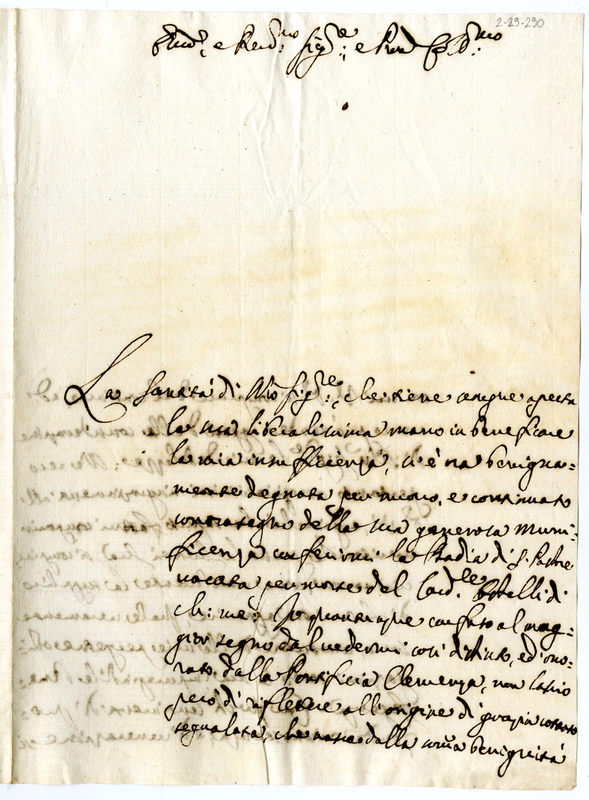 2-29-290
Em.mo e Rev.mo Sig.re e Pron
La Santità di Nro Sig.re, che tiene sempre aperta
la sua liberalissima mano in beneficare
la mia insufficienza, si è ora benigna=
mente degnata per nuovo, e continuato
contrasegno della sua generosa muni=
ficenza conferirmi la Badia di S. Pastore
vacata per morte del Card.le di
ch: me: Io quantunque confuso al mag=
gior segno dal vedermi così distinto, ed ono=
rato dalla Pontificia Clemenza, non lascio
però di riflettere all'origine di grazia cotanto
segnalata, che nasce dalla somma benignità